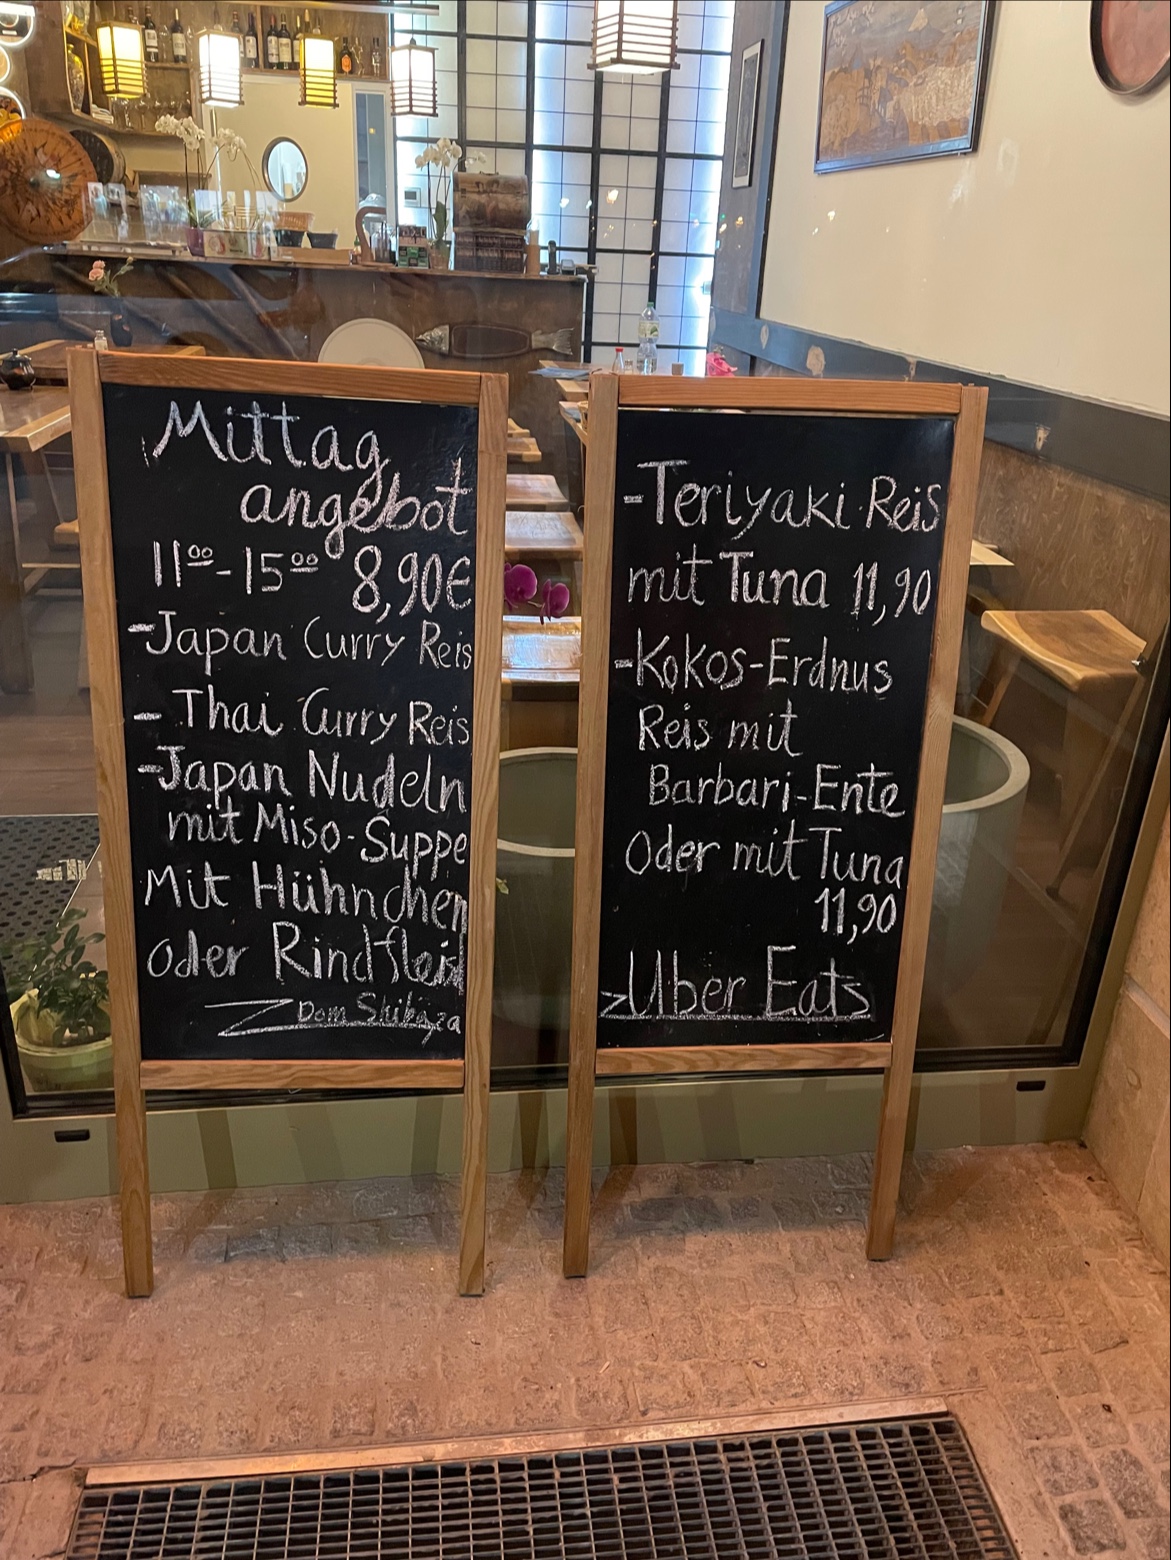 Mittag
angebot
11⁰⁰-15⁰⁰ 8,90€
-Japan Curry Reis
- Thai Curry Reis
-Japan Nudeln
mit Miso-Suppe
Mit Hühnchen
oder Rindfleisch
Dom Shibaza
-Teriyaki Reis
mit Tuna 11,90
-Kokos-Erdnus
Reis mit
Barbari-Ente
Oder mit Tuna
11,90
Uber Eats